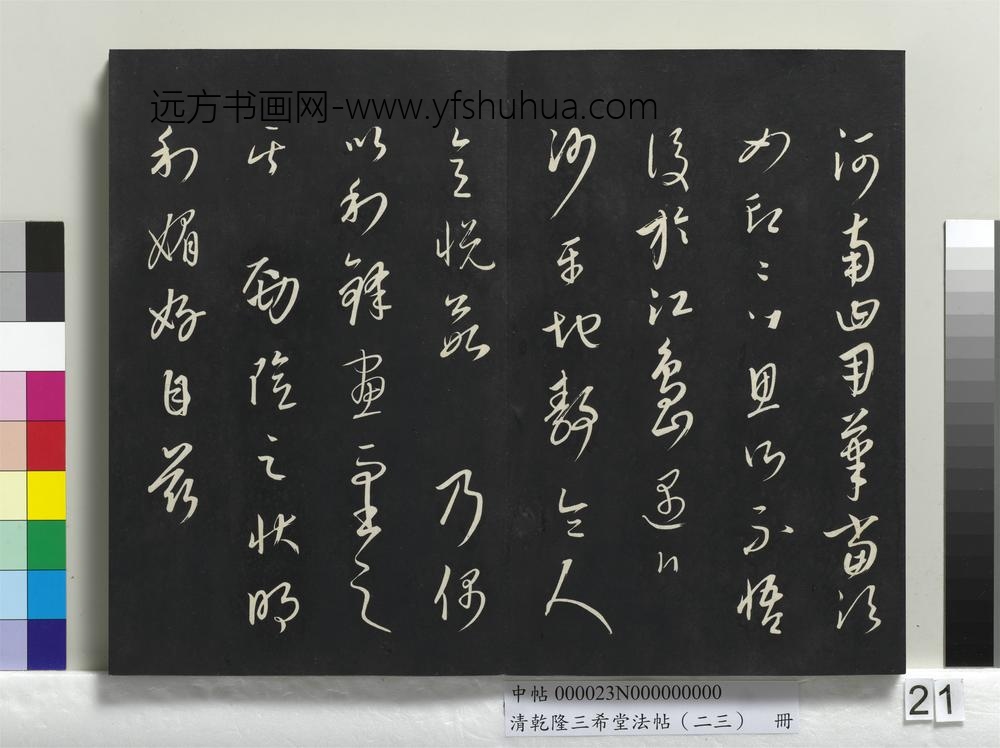 远方书画网-www.yfshuhua.com
河南曰用筆當須
如印〻思所不悟
後於江島遇
沙平地令人
意悅乃偶
以利鋒畫而書之
其勁險之狀明
利媚好自茲
中帖 000023N000000000
清乾隆三希堂法帖（二三） 冊
21